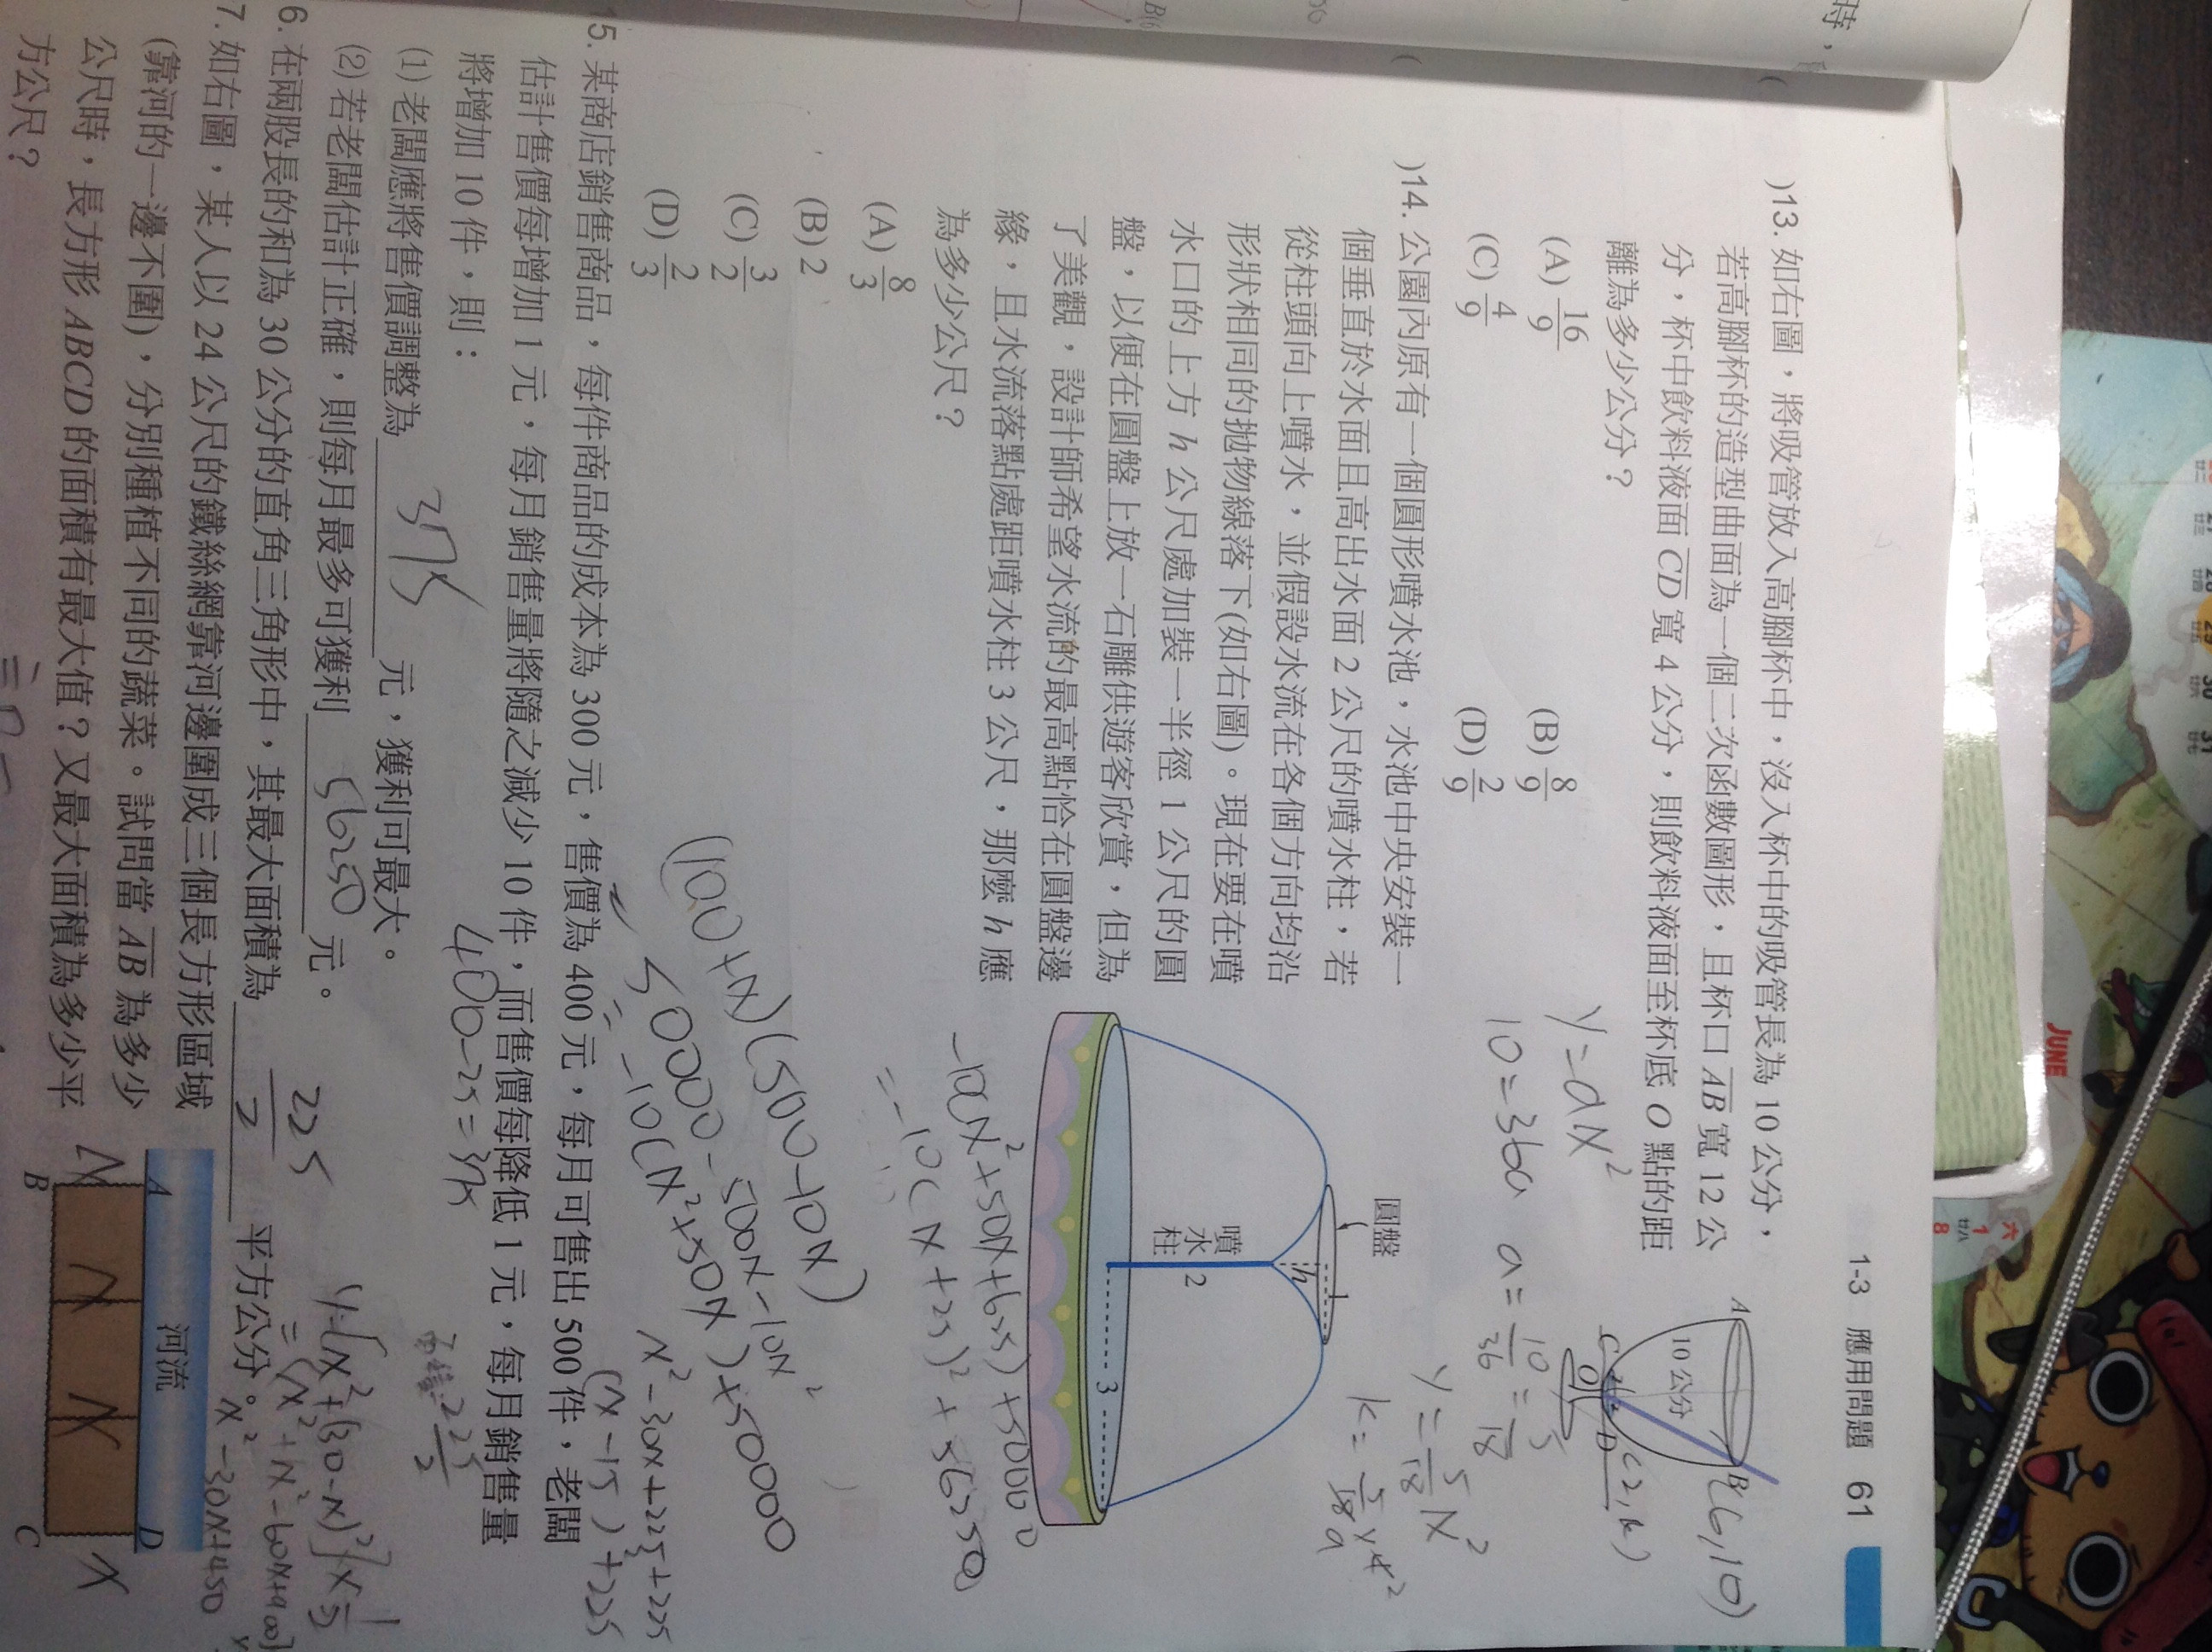 1-3 應用問題 61
)13. 如右圖，將吸管放入高腳杯中，沒入杯中的吸管長為 10 公分，
若高腳杯的造型曲面為一個二次函數圖形，且杯口 AB 寬 12 公
分，杯中飲料液面 CD 寬 4 公分，則飲料液面至杯底 O 點的距
離為多少公分？
(A) 16/9 (B) 8/9
(C) 4/9 (D) 2/9
A
B(6,10)
10 公分
C
D
(2,k)
O
y=ax²
10=36a a=10/36=5/18
y=5/18x²
)14. 公園內原有一個圓形噴水池，水池中央安裝一
個垂直於水面且高出水面 2 公尺的噴水柱，若
從柱頭向上噴水，並假設水流在各個方向均沿
形狀相同的拋物線落下(如右圖)。現在要在噴
水口的上方 h 公尺處加裝一半徑 1 公尺的圓
盤，以便在圓盤上放一石雕供遊客欣賞，但為
了美觀，設計師希望水流的最高點恰在圓盤邊
緣，且水流落點處距噴水柱 3 公尺，那麼 h 應
為多少公尺？
(A) 8/3
(B) 2
(C) 3/2
(D) 2/3
圓盤
1
h
噴水柱
2
3
(100+x)(500-10x)
50000-500x-10x²
=-10(x²+50x)+50000
-10(x²+50x+625)+50000
=-10(x+25)²+56250
15. 某商店銷售商品，每件商品的成本為 300 元，售價為 400 元，每月可售出 500 件，老闆
估計售價每增加 1 元，每月銷售量將隨之減少 10 件，而售價每降低 1 元，每月銷售量
將增加 10 件，則：
(1) 老闆應將售價調整為 375 元，獲利可最大。
(2) 若老闆估計正確，則每月最多可獲利 56250 元。
400-25=375
6. 在兩股長的和為 30 公分的直角三角形中，其最大面積為 225/2 平方公分。
x²-30x+225+225
(x-15)+225
x²-30x+450
7. 如右圖，某人以 24 公尺的鐵絲網靠河邊圍成三個長方形區域
(靠河的一邊不圍)，分別種植不同的蔬菜。試問當 AB 為多少
公尺時，長方形 ABCD 的面積有最大值？又最大面積為多少平
方公尺？
河流
A
D
B
C
x
x
x
x